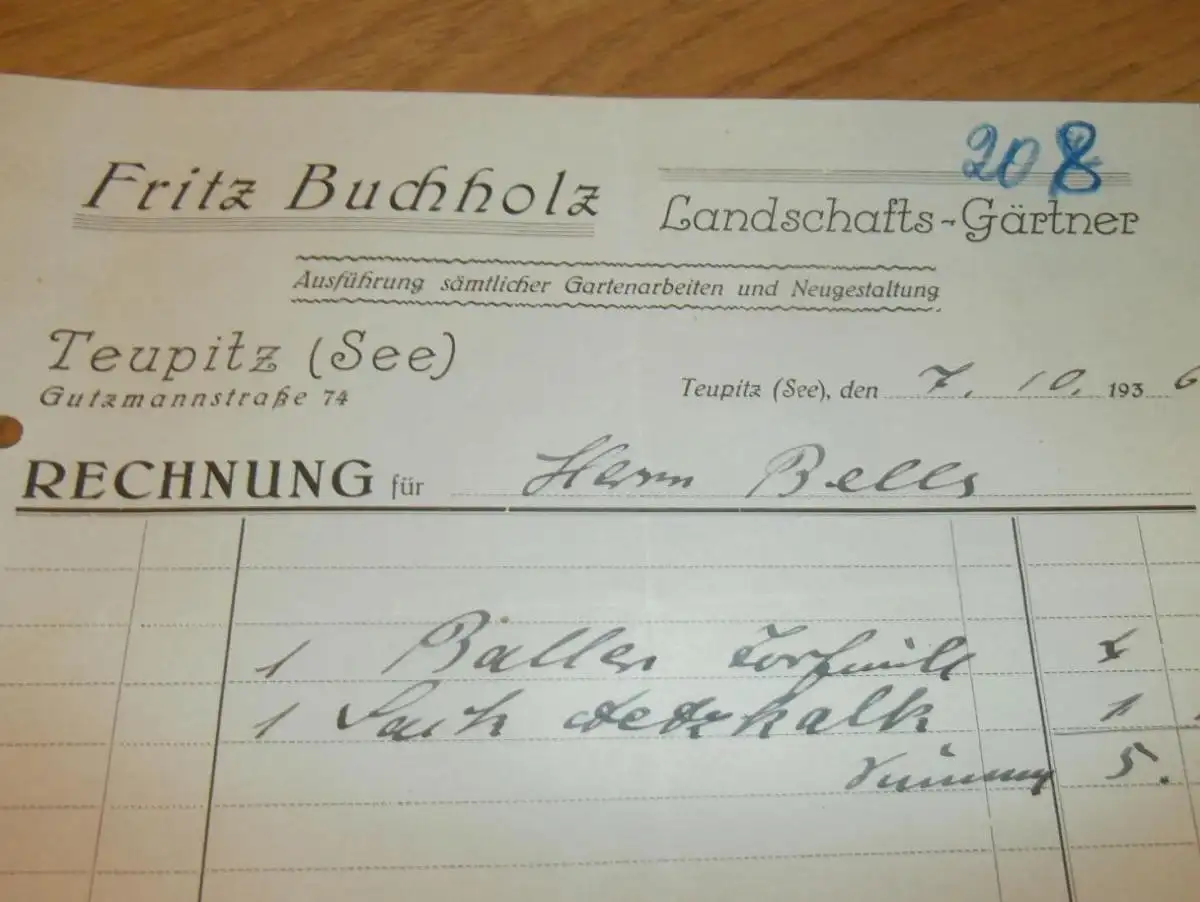 208
Fritz Buchholz
Landschafts-Gärtner
Ausführung sämtlicher Gartenarbeiten und Neugestaltung
Teupitz (See)
Gutzmannstraße 74
Teupitz (See), den 7. 10. 1936
RECHNUNG für Herrn
1 Ballen Torfmüll
1 Sack Aetzkalk 1
5.